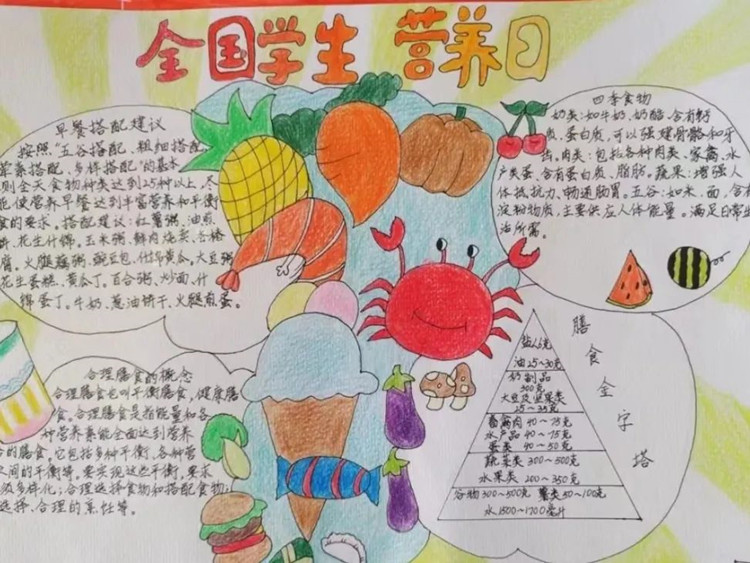 全国学生 营养日
早餐搭配建议
按照"五谷搭配、粗细搭配、
荤素搭配、多样搭配"的基本
则全天食物种类达到25种以上,尽
能使营养早餐达到丰富营养和平衡
食的要求。搭配建议:红薯粥、油煎
饼、花生什锦。玉米粥、鲜肉烧卖、
腐。火腿蔬粥、豌豆包、什锦黄瓜。大豆粥
花生蛋糕、黄瓜丁。百合粥、炒面、什
锦蛋丁。牛奶、葱油饼干、火腿煎蛋。
合理膳食的概念
合理膳食也叫平衡膳食,健康膳
食,合理膳食是指能量和各
种营养素能全面达到营养
的膳食,它包括多种平衡、各种营
之间的平衡等。要实现这些平衡,要求
多样化;合理选择食物和搭配食物;
选择、合理的烹饪等。
四季食物
奶类:如牛奶、奶酪、含有钙
质、蛋白质,可以强建骨骼和牙
齿。肉类:包括各种肉类、家禽、水
产类蛋、含有蛋白质、脂肪。蔬果:增强人
体抵抗力、畅通肠胃。五谷:如米、面,含有
淀粉物质,主要供应人体能量。满足日常生
活所需。
膳食金字塔
盐6克
油25~30克
奶制品
300克
大豆及坚果类
25~35克
畜禽肉 40~75克
水产品 40~75克
蛋类 40~50克
蔬菜类 300~500克
水果类 200~350克
谷物300~500克 薯类50~100克
水1500~1700毫升